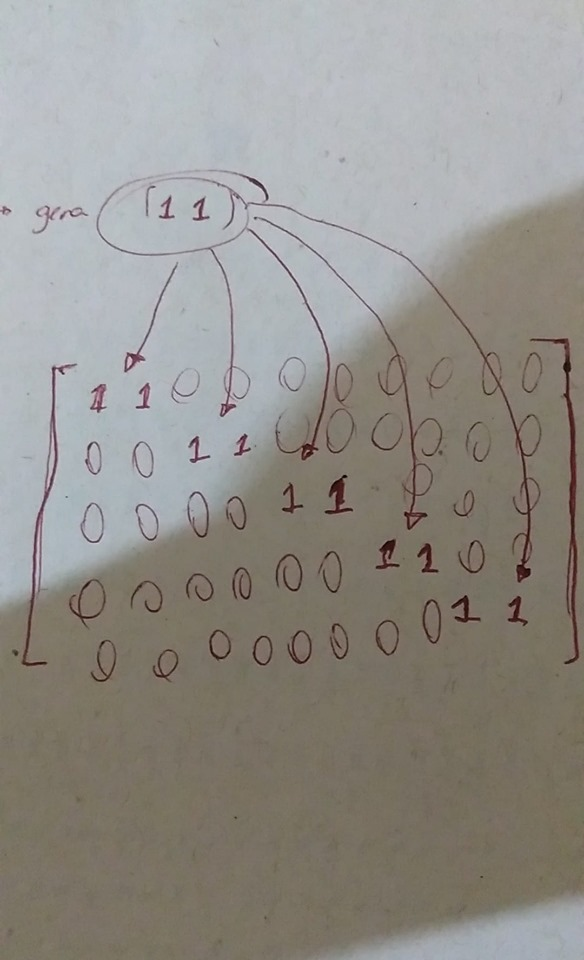 gera [1 1]
1 1 0 0 0 0 0 0 0 0
0 0 1 1 0 0 0 0 0 0
0 0 0 0 1 1 0 0 0
0 0 0 0 0 0 1 1 0 0
0 0 0 0 0 0 0 0 1 1